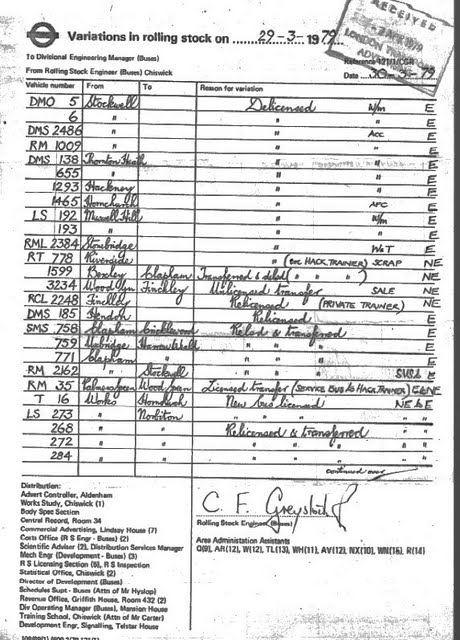 Variations in rolling stock on 29-3-1979
RECEIVED
LONDON
To Divisional Engineering Manager (Buses)
From Rolling Stock Engineer (Buses) Chiswick
Reference 121/1/CGR
Date 30-3-79
Vehicle number From To Reason for variation
DMO 5 Stockwell Delicensed W/m E
6 " " " E
DMS 2486 " " Acc E
RM 1009 " " " E
DMS 138 Thornton Heath " " E
655 " " " E
1293 Hackney " " E
1465 Hornchurch " AFC E
LS 192 Muswell Hill " W/m E
193 " " " E
RML 2384 Stonebridge " W&T E
RT 778 Riverside " (ex HACK TRAINER) SCRAP NE
1599 Bexley Clapham Transferred & delcd ( " " ) NE
3234 Wood Grn Finchley Unlicensed transfer SALE NE
RCL 2248 Finchley Relicensed (PRIVATE TRAINER) NE
DMS 185 Hendon Relicensed E
SMS 758 Clapham Cricklewood Relcd & transferred E
759 Uxbridge Harrow Weald " " " E
771 Clapham " " " " E
RM 2162 " Stockwell " " " E
RM 35 Palmers Green Wood Green Licensed transfer (SERVICE BUS to HACK TRAINER) E&NE
T 16 Works Hornchurch New bus licensed NE & E
LS 273 " Norbiton " " " " "
268 " " Relicensed & transferred " "
272 " " " " " " "
284 " " " " " " "
continued over
Distribution:
Advert Controller, Aldenham
Works Study, Chiswick (1)
Body Spec Section
Central Record, Room 34
Commercial Advertising, Lindsay House (7)
Costs Office (R S Engr - Buses) (2)
Scientific Adviser (2), Distribution Services Manager
Mech Engr (Development - Buses) (3)
R S Licensing Section (5), R S Inspection
Statistical Office, Chiswick (2)
Director of Development (Buses)
Schedules Supt - Buses (Attn of Mr Hyslop)
Revenue Office, Griffith House, Room 432 (2)
Div Operating Manager (Buses), Mansion House
Training School, Chiswick (Attn of Mr Carter)
Development Engr, Signalling, Telstar House
C. F. Greystock
Rolling Stock Engineer (Buses)
Area Administation Assistants
Q(9), AR(12), W(12), TL(13), WH(11), AV(12), NX(10), WN(15), R(14)